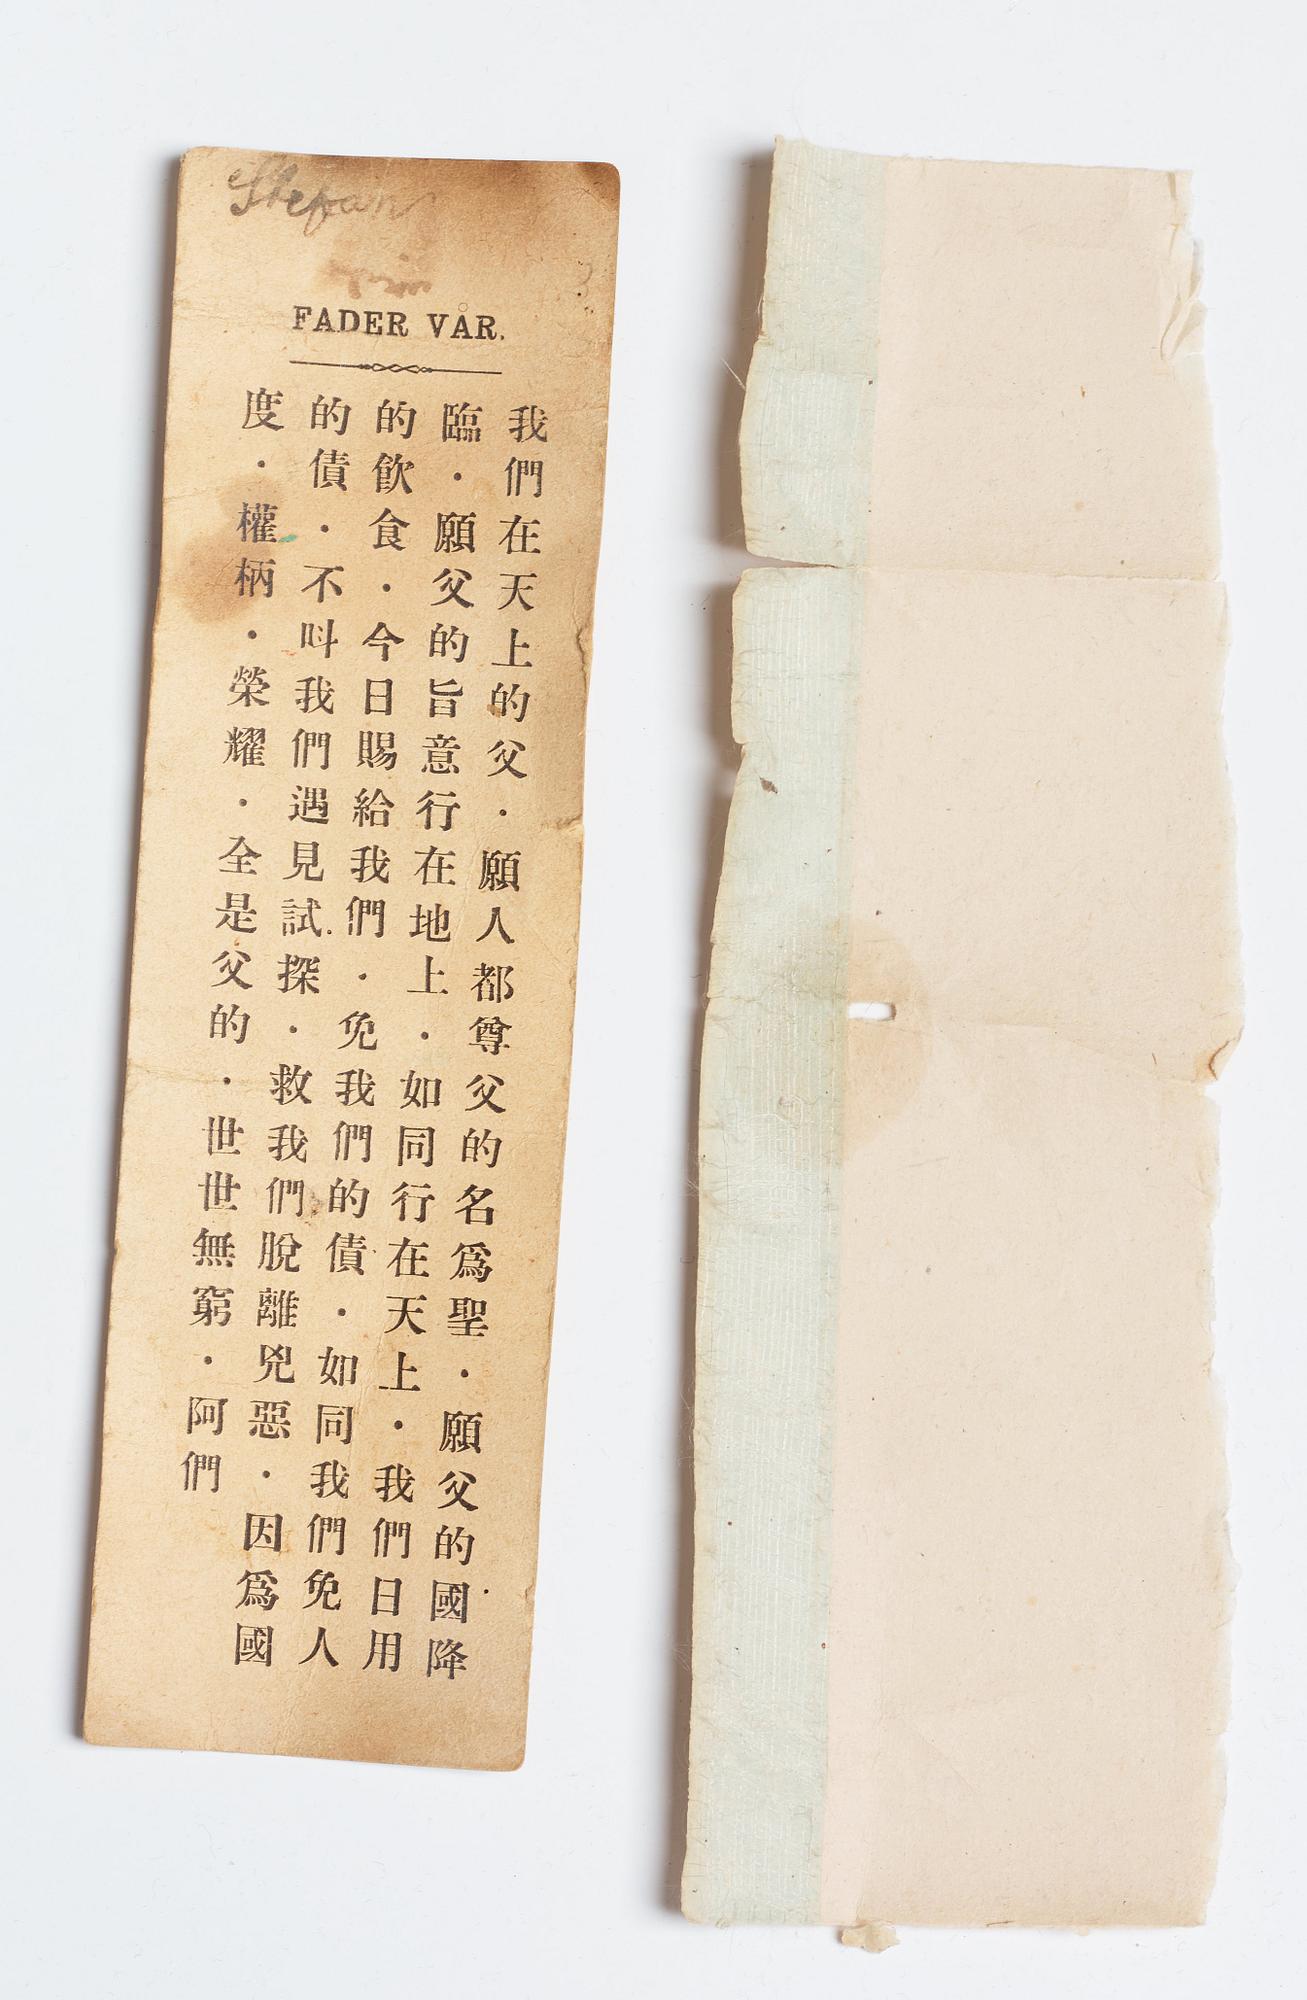 Stefan
FADER VÅR.
我們在天上的父．願人都尊父的名爲聖．願父的國降
臨．願父的旨意行在地上．如同行在天上．我們日用
的飲食．今日賜給我們．免我們的債．如同我們免人
的債．不呌我們遇見試探．救我們脫離兇惡．因爲國
度．權柄．榮耀．全是父的．世世無窮．阿們